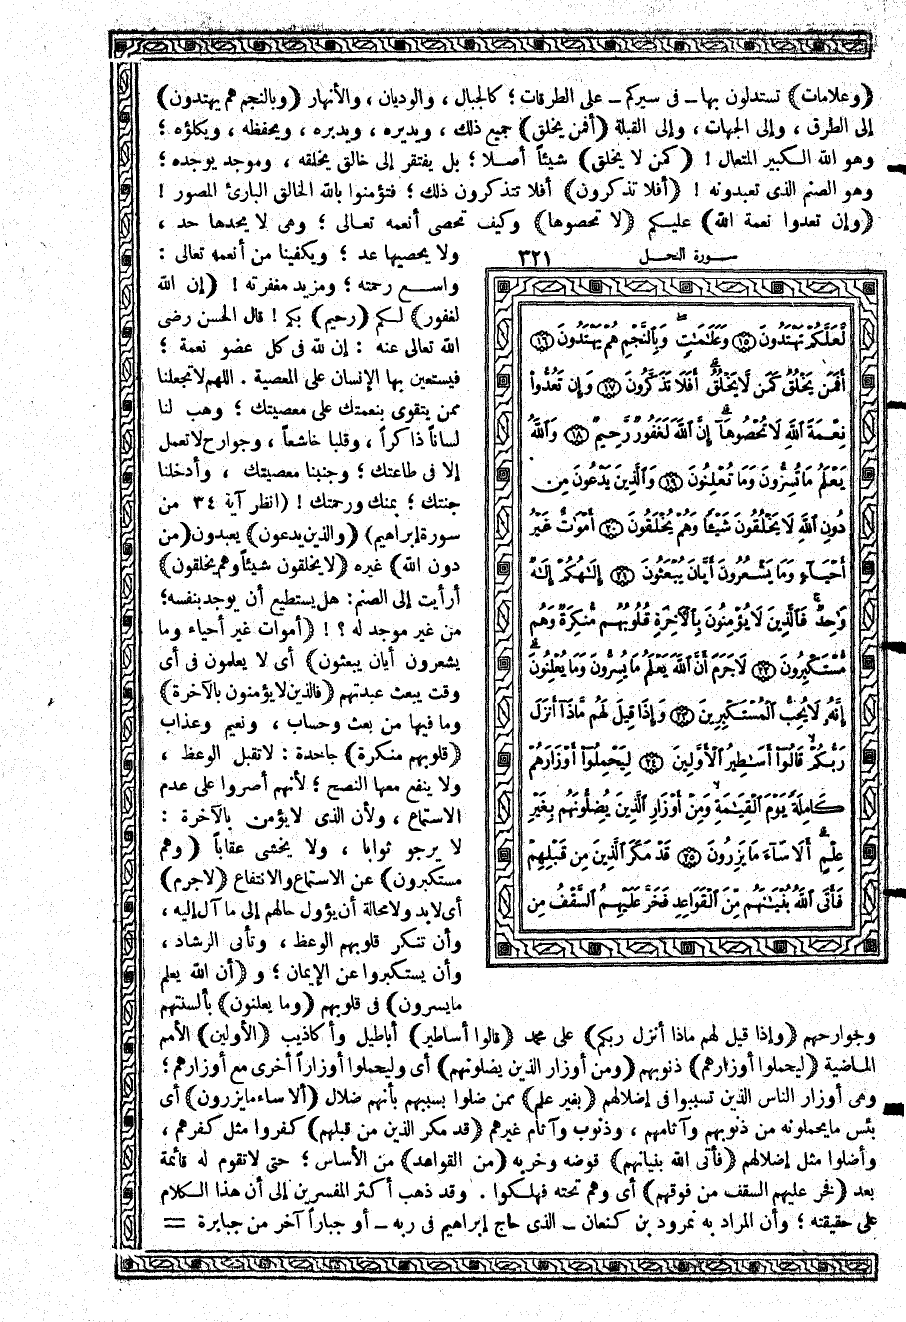 (وعلامات) تستدلون بها ــ فى سيركم ــ على الطرقات ؛ كالجبال ، والوديان ، والأنهار (وبالنجم هم يهتدون)
إلى الطرق ، وإلى الجهات ، وإلى القبلة (أفمن يخلق) جميع ذلك ، ويديره ، ويدبره ، ويحفظه ، ويكلؤه ؛
وهو الله الكبير المتعال ! (كمن لا يخلق) شيئاً أصلا ؛ بل يفتقر إلى خالق يخلقه ، وموجد يوجده ؛
وهو الصنم الذى تعبدونه ! (أفلا تذكرون) أفلا تتذكرون ذلك ؛ فتؤمنوا بالله الخالق البارئ المصور !
(وإن تعدوا نعمة الله) عليكم (لا تحصوها) وكيف تحصى أنعمه تعالى ؛ وهى لا يحدها حد ،
ولا يحصيها عد ؛ ويكفينا من أنعمه تعالى :
واسع رحمته ؛ ومزيد مغفرته ! (إن الله
لغفور) لكم (رحيم) بكم ! قال الحسن رضى
الله تعالى عنه : إن لله فى كل عضو نعمة ؛
فيستعين بها الإنسان على المعصية . اللهم لا تجعلنا
ممن يتقوى بنعمتك على معصيتك ؛ وهب لنا
لساناً ذاكراً ، وقلبا خاشعاً ، وجوارح لا تعمل
إلا فى طاعتك ؛ وجنبنا معصيتك ، وأدخلنا
جنتك ؛ بمنك ورحمتك ! (انظر آية ٣٤ من
سورة إبراهيم) (والذين يدعون) يعبدون (من
دون الله) غيره (لا يخلقون شيئاً وهم يخلقون)
أرأيت إلى الصنم : هل يستطيع أن يوجد بنفسه ؛
من غير موجد له ؟ ! (أموات غير أحياء وما
يشعرون أيان يبعثون) أى لا يعلمون فى أى
وقت يبعث عبدتهم (فالذين لا يؤمنون بالآخرة)
وما فيها من بعث وحساب ، ونعيم وعذاب
(قلوبهم منكرة) جاحدة : لا تقبل الوعظ ،
ولا ينفع معها النصح ؛ لأنهم أصروا على عدم
الاستماع ، ولأن الذى لا يؤمن بالآخرة :
لا يرجو ثوابا ، ولا يخشى عقاباً (وهم
مستكبرون) عن الاستماع والانتفاع (لاجرم)
أى لابد ولا محالة أن يؤول حالهم إلى ما آل إليه ،
وأن تنكر قلوبهم الوعظ ، وتأبى الرشاد ،
وأن يستكبروا عن الإيمان ؛ و (أن الله يعلم
ما يسرون) فى قلوبهم (وما يعلنون) بألسنتهم
سورة النحل ٣٢١
لَّعَلَّكُمْ تَهْتَدُونَ ١٥ وَعَلَٰمَٰتٍ وَبِالنَّجْمِ هُمْ يَهْتَدُونَ ١٦
أَفَمَن يَخْلُقُ كَمَن لَّا يَخْلُقُ أَفَلَا تَذَكَّرُونَ ١٧ وَإِن تَعُدُّوا
نِعْمَةَ اللَّهِ لَا تُحْصُوهَا إِنَّ اللَّهَ لَغَفُورٌ رَّحِيمٌ ١٨ وَاللَّهُ
يَعْلَمُ مَا تُسِرُّونَ وَمَا تُعْلِنُونَ ١٩ وَالَّذِينَ يَدْعُونَ مِن
دُونِ اللَّهِ لَا يَخْلُقُونَ شَيْئًا وَهُمْ يُخْلَقُونَ ٢٠ أَمْوَٰتٌ غَيْرُ
أَحْيَاءٍ وَمَا يَشْعُرُونَ أَيَّانَ يُبْعَثُونَ ٢١ إِلَٰهُكُمْ إِلَٰهٌ
وَٰحِدٌ فَالَّذِينَ لَا يُؤْمِنُونَ بِالْآخِرَةِ قُلُوبُهُم مُّنكِرَةٌ وَهُم
مُّسْتَكْبِرُونَ ٢٢ لَا جَرَمَ أَنَّ اللَّهَ يَعْلَمُ مَا يُسِرُّونَ وَمَا يُعْلِنُونَ
إِنَّهُ لَا يُحِبُّ الْمُسْتَكْبِرِينَ ٢٣ وَإِذَا قِيلَ لَهُم مَّاذَا أَنزَلَ
رَبُّكُمْ قَالُوا أَسَٰطِيرُ الْأَوَّلِينَ ٢٤ لِيَحْمِلُوا أَوْزَارَهُمْ
كَامِلَةً يَوْمَ الْقِيَٰمَةِ وَمِنْ أَوْزَارِ الَّذِينَ يُضِلُّونَهُم بِغَيْرِ
عِلْمٍ أَلَا سَاءَ مَا يَزِرُونَ ٢٥ قَدْ مَكَرَ الَّذِينَ مِن قَبْلِهِمْ
فَأَتَى اللَّهُ بُنْيَٰنَهُم مِّنَ الْقَوَاعِدِ فَخَرَّ عَلَيْهِمُ السَّقْفُ مِن
وجوارحهم (وإذا قيل لهم ماذا أنزل ربكم) على محمد (قالوا أساطير) أباطيل وأكاذيب (الأولين) الأمم
الماضية (ليحملوا أوزارهم) ذنوبهم (ومن أوزار الذين يضلونهم) أى وليحملوا أوزاراً أخرى مع أوزارهم ؛
وهى أوزار الناس الذين تسببوا فى إضلالهم (بغير علم) ممن ضلوا بسببهم بأنهم ضلال (ألا ساء ما يزرون) أى
بئس ما يحملونه من ذنوبهم وآثامهم ، وذنوب وآثام غيرهم (قد مكر الذين من قبلهم) كفروا مثل كفرهم ،
وأضلوا مثل إضلالهم (فأتى الله بنيانهم) قوضه وخربه (من القواعد) من الأساس ؛ حتى لا تقوم له قائمة
بعد (فخر عليهم السقف من فوقهم) أى وهم تحته فهلكوا . وقد ذهب أكثر المفسرين إلى أن هذا الكلام
على حقيقته ؛ وأن المراد به نمرود بن كنعان ــ الذى حاج إبراهيم فى ربه ــ أو جباراً آخر من جبابرة =